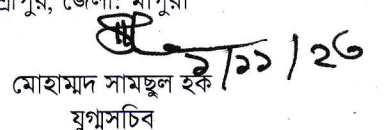 শ্রীপুর, জেলা: মাগুরা
২/১১/২৩
মোহাম্মাদ সামছুল হক
যুগ্মসচিব